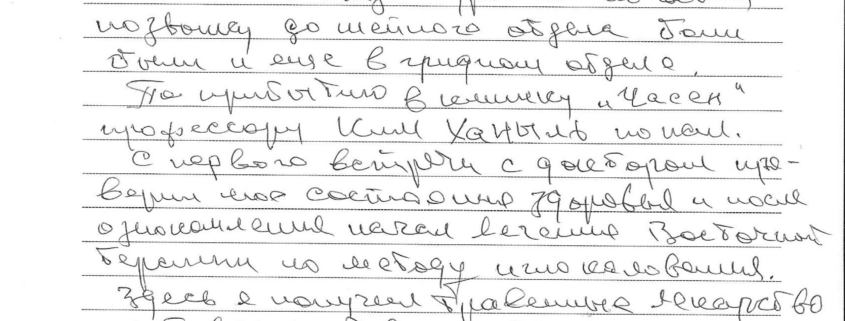 позвонку до шейного отдела боли
были и еще в грудном отделе.
По прибытию в клинику „Часен“
профессору Ким Ханыль попал.
С первого встречи с доктором про-
верил мое состояние здоровья и после
ознокомления начал лечение Восточной
терапии по методу иглокалования.
Здесь я получил травенные лекарство